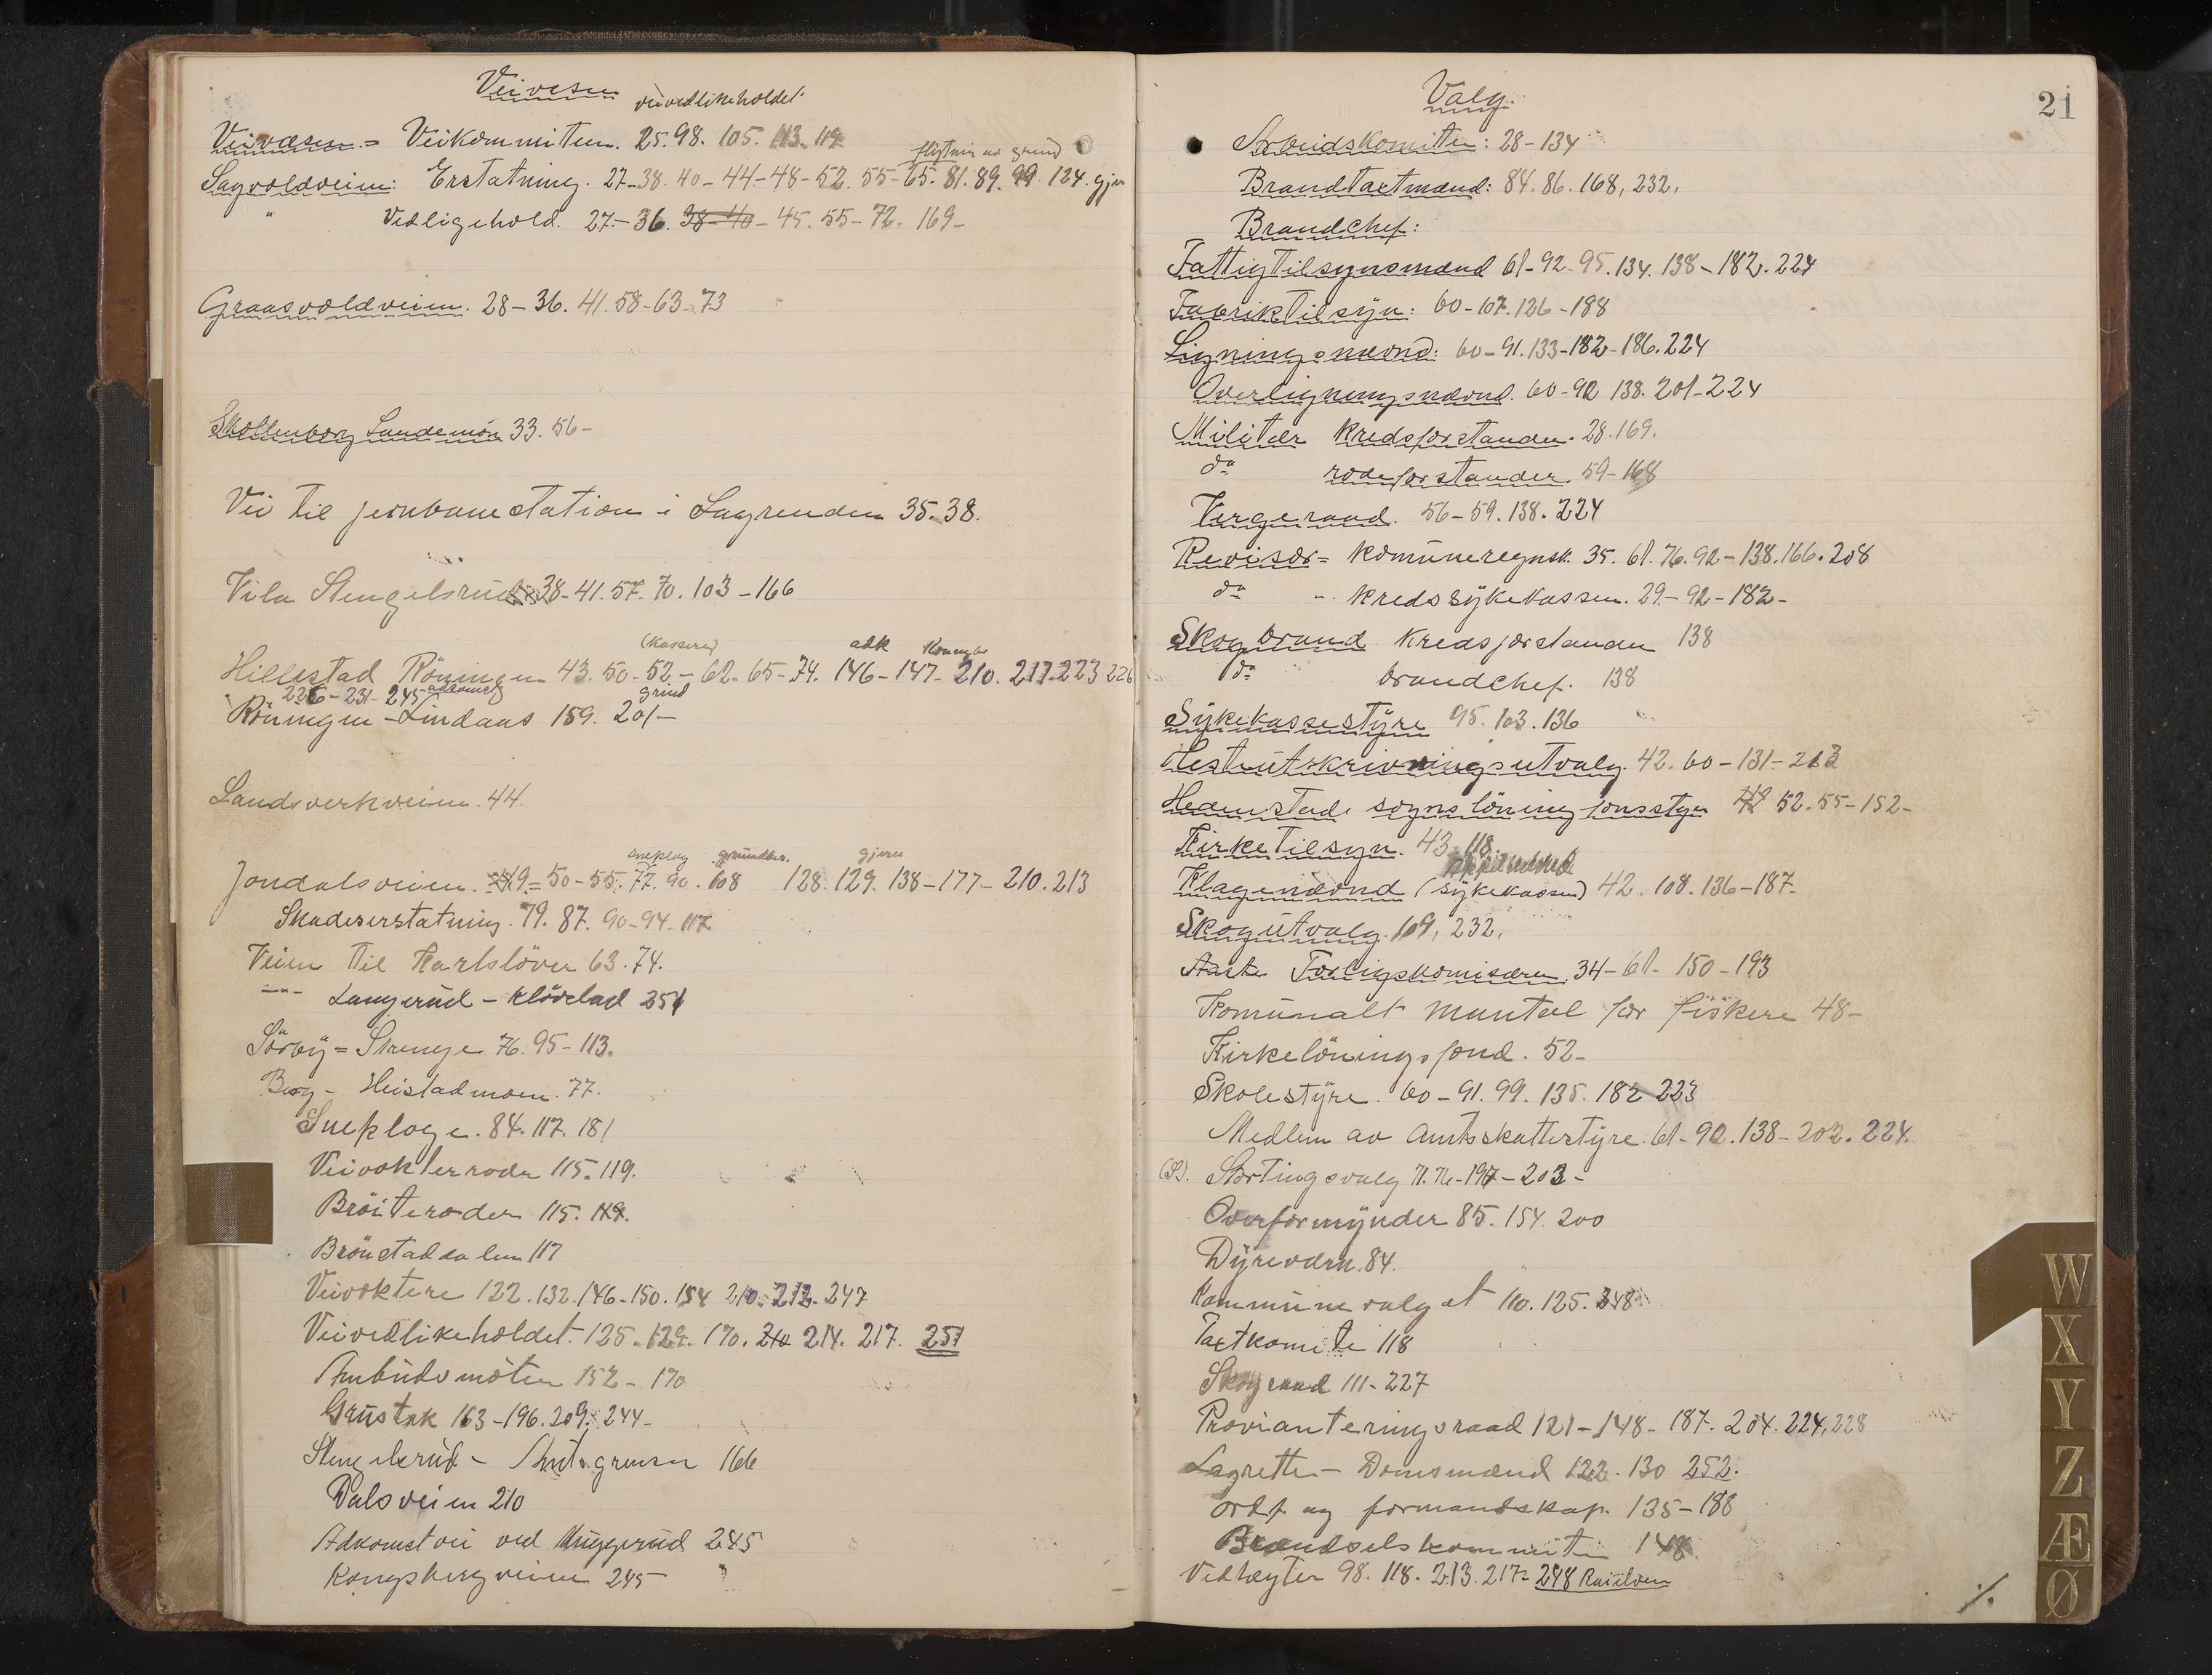 Veivæsen
veivedlikeholdet
Veivæsen = Veikommiteen. 25. 98. 105. 113. 119
flytning av grind
Sagvoldveien: Erstatning. 27-38. 40-44-48-52. 55-65. 81. 89. 99. 124. gjer
" Vedligehold. 27-36. 38-40-45. 55-72. 169-
Graasvoldveien. 28-36. 41. 58-63-73
Skollenborg Sandemôn 33. 56-
Vei til jernbanestation i Sagrenden 35. 38.
Stengelsrud 38-41. 57. 70. 103-166
Hillestad Röningen 43. 50-52-62-65-74. 146-147-210. 217-223 226
226-231-245 adkomst grind
Röningen-Lindaas 159. 201-
Landsverkveien. 44.
sneplog grundler. gjeru
Jondalsveien. 49=50-55. 77. 90. 108 128. 129. 138-177-210. 213
Skadeserstatning. 79. 87. 90-94. 117.
Veien til Karlslöver 63. 74.
-"- Langerud-Klövstad 251
Sörby=Strenge 76. 95-113.
Berg-Heistadmoen. 77.
Sneploge. 84. 117. 181
Veivokterrode 115. 119.
Bröiteroder 115. 119.
Brönstaddalen 117
Veivoktere 122. 132. 146-150. 154 210. 212. 247
Veivedlikeholdet. 125. 129. 170. 210 214. 217. 251
Anbudsmöter 152-170
Grustak 163-196. 209. 244-
Stengelsrud - Amtsgrensen 166
Dalsveien 210
Adkomstvei ved Muggerud 245
Kongsbergveien 245-
Valg.
21
Arbeidskomiteen: 28-134
Brandtaxtmænd: 84. 86. 168, 232.
Brandchef:
Fattigtilsynsmænd 61-92-95. 134. 138-182. 224
Fabriktilsyn: 60-107. 126-188
Ligningsnævnd: 60-91. 133-182-186. 224
Overligningsnævnd. 60-92 138. 201-224
Militær Kredsforstander. 28. 169.
do rodeforstander. 59-168
Vergeraad. 56-59. 138. 224
Revisor = Kommuneregnsk. 35. 61. 76. 92-138. 166. 208
do " Kredssykekassen. 29-92-182-
Skogbrand Kredsforstander 138
do brandchef. 138
Sykekassestyre 95. 103. 136
Hesteutskrivningsutvalg. 42. 60-131-213
Hedenstad sogns lönningsfonsstyre 52. 55-152-
Kirketilsyn. 43 118
Klagenævnd (Sykekassen) 42. 108. 136-187-
Skogutvalg. 109, 232.
Forligskomisæren. 34-61-150-193
Komunalt mantal for fiskere 48-
Kirkelöningsfond. 52-
Skolestyre. 60-91. 99. 135. 182 223
Medlem av Amtsskattestyre. 61-92. 138-202. 224.
(St). Stortingsvalg 71. 76-197-203-
Overformynder 85. 154. 200
Dyreværn. 84.
Kommunevalget 110. 125. 248
Taxtkomite 118
Skograad 111-227
Provianteringsraad 121-148-187-204. 224, 228
Lagrette-Domsmænd 122. 130 252.
Ordf. og formandskap. 135-188
Brændselskommiteen 148
Vedtægter 98. 118. 213. 217-248
W
X
Y
Z
Æ
Ø